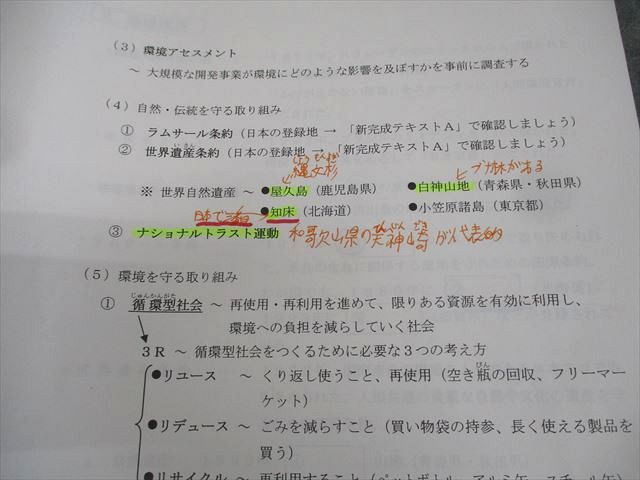 (3) 環境アセスメント
～ 大規模な開発事業が環境にどのような影響を及ぼすかを事前に調査する
(4) 自然・伝統を守る取り組み
① ラムサール条約（日本の登録地 → 「新完成テキストＡ」で確認しましょう）
② 世界遺産条約（日本の登録地 → 「新完成テキストＡ」で確認しましょう）
いさん
じょうもんすぎ
縄文杉
ブナ林がある
※ 世界自然遺産 ～ ●屋久島（鹿児島県） ●白神山地（青森県・秋田県）
●知床（北海道） ●小笠原諸島（東京都）
③ ナショナルトラスト運動 和歌山県の天神崎が代表的
(5) 環境を守る取り組み
じゅんかんがた
① 循環型社会 ～ 再使用・再利用を進めて、限りある資源を有効に利用し、
環境への負担を減らしていく社会
３Ｒ ～ 循環型社会をつくるために必要な３つの考え方
びん
●リユース ～ くり返し使うこと、再使用（空き瓶の回収、フリーマー
ケット）
●リデュース ～ ごみを減らすこと（買い物袋の持参、長く使える製品を
買う）
●リサイクル ～ 再利用すること（ペットボトル、アルミ缶、スチール缶